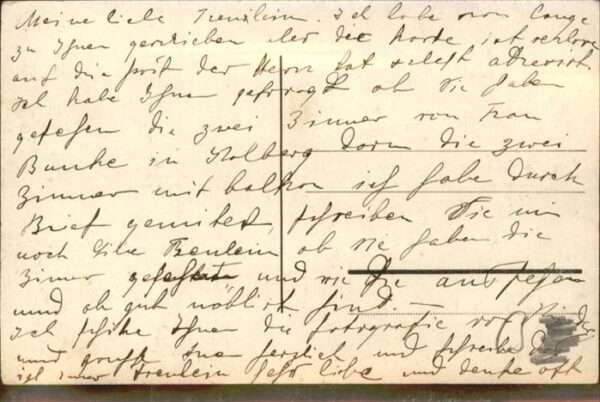 Meine liebe Freulein. Ich habe von lange
zu Ihnen geschrieben aber die Karte ist verloren
auf die post der Herr hat selbst adresirt.
Ich habe Ihnen gefragt ob Sie haben
gesehen die zwei Zimmer von Frau
Bunke in Kolberg dorm die zwei
Zimmer mit balkon ich habe durch
Brief gemitet, schreiben Sie mir
noch liebe Freulein ob Sie haben die
Zimer und wie Sie aussehen
und ob gut möblirt sind. —
Ich schike Ihnen die fotografie von
und grusse Sie herzlich und schreibe
ich Freulein sehr liebe und denke oft